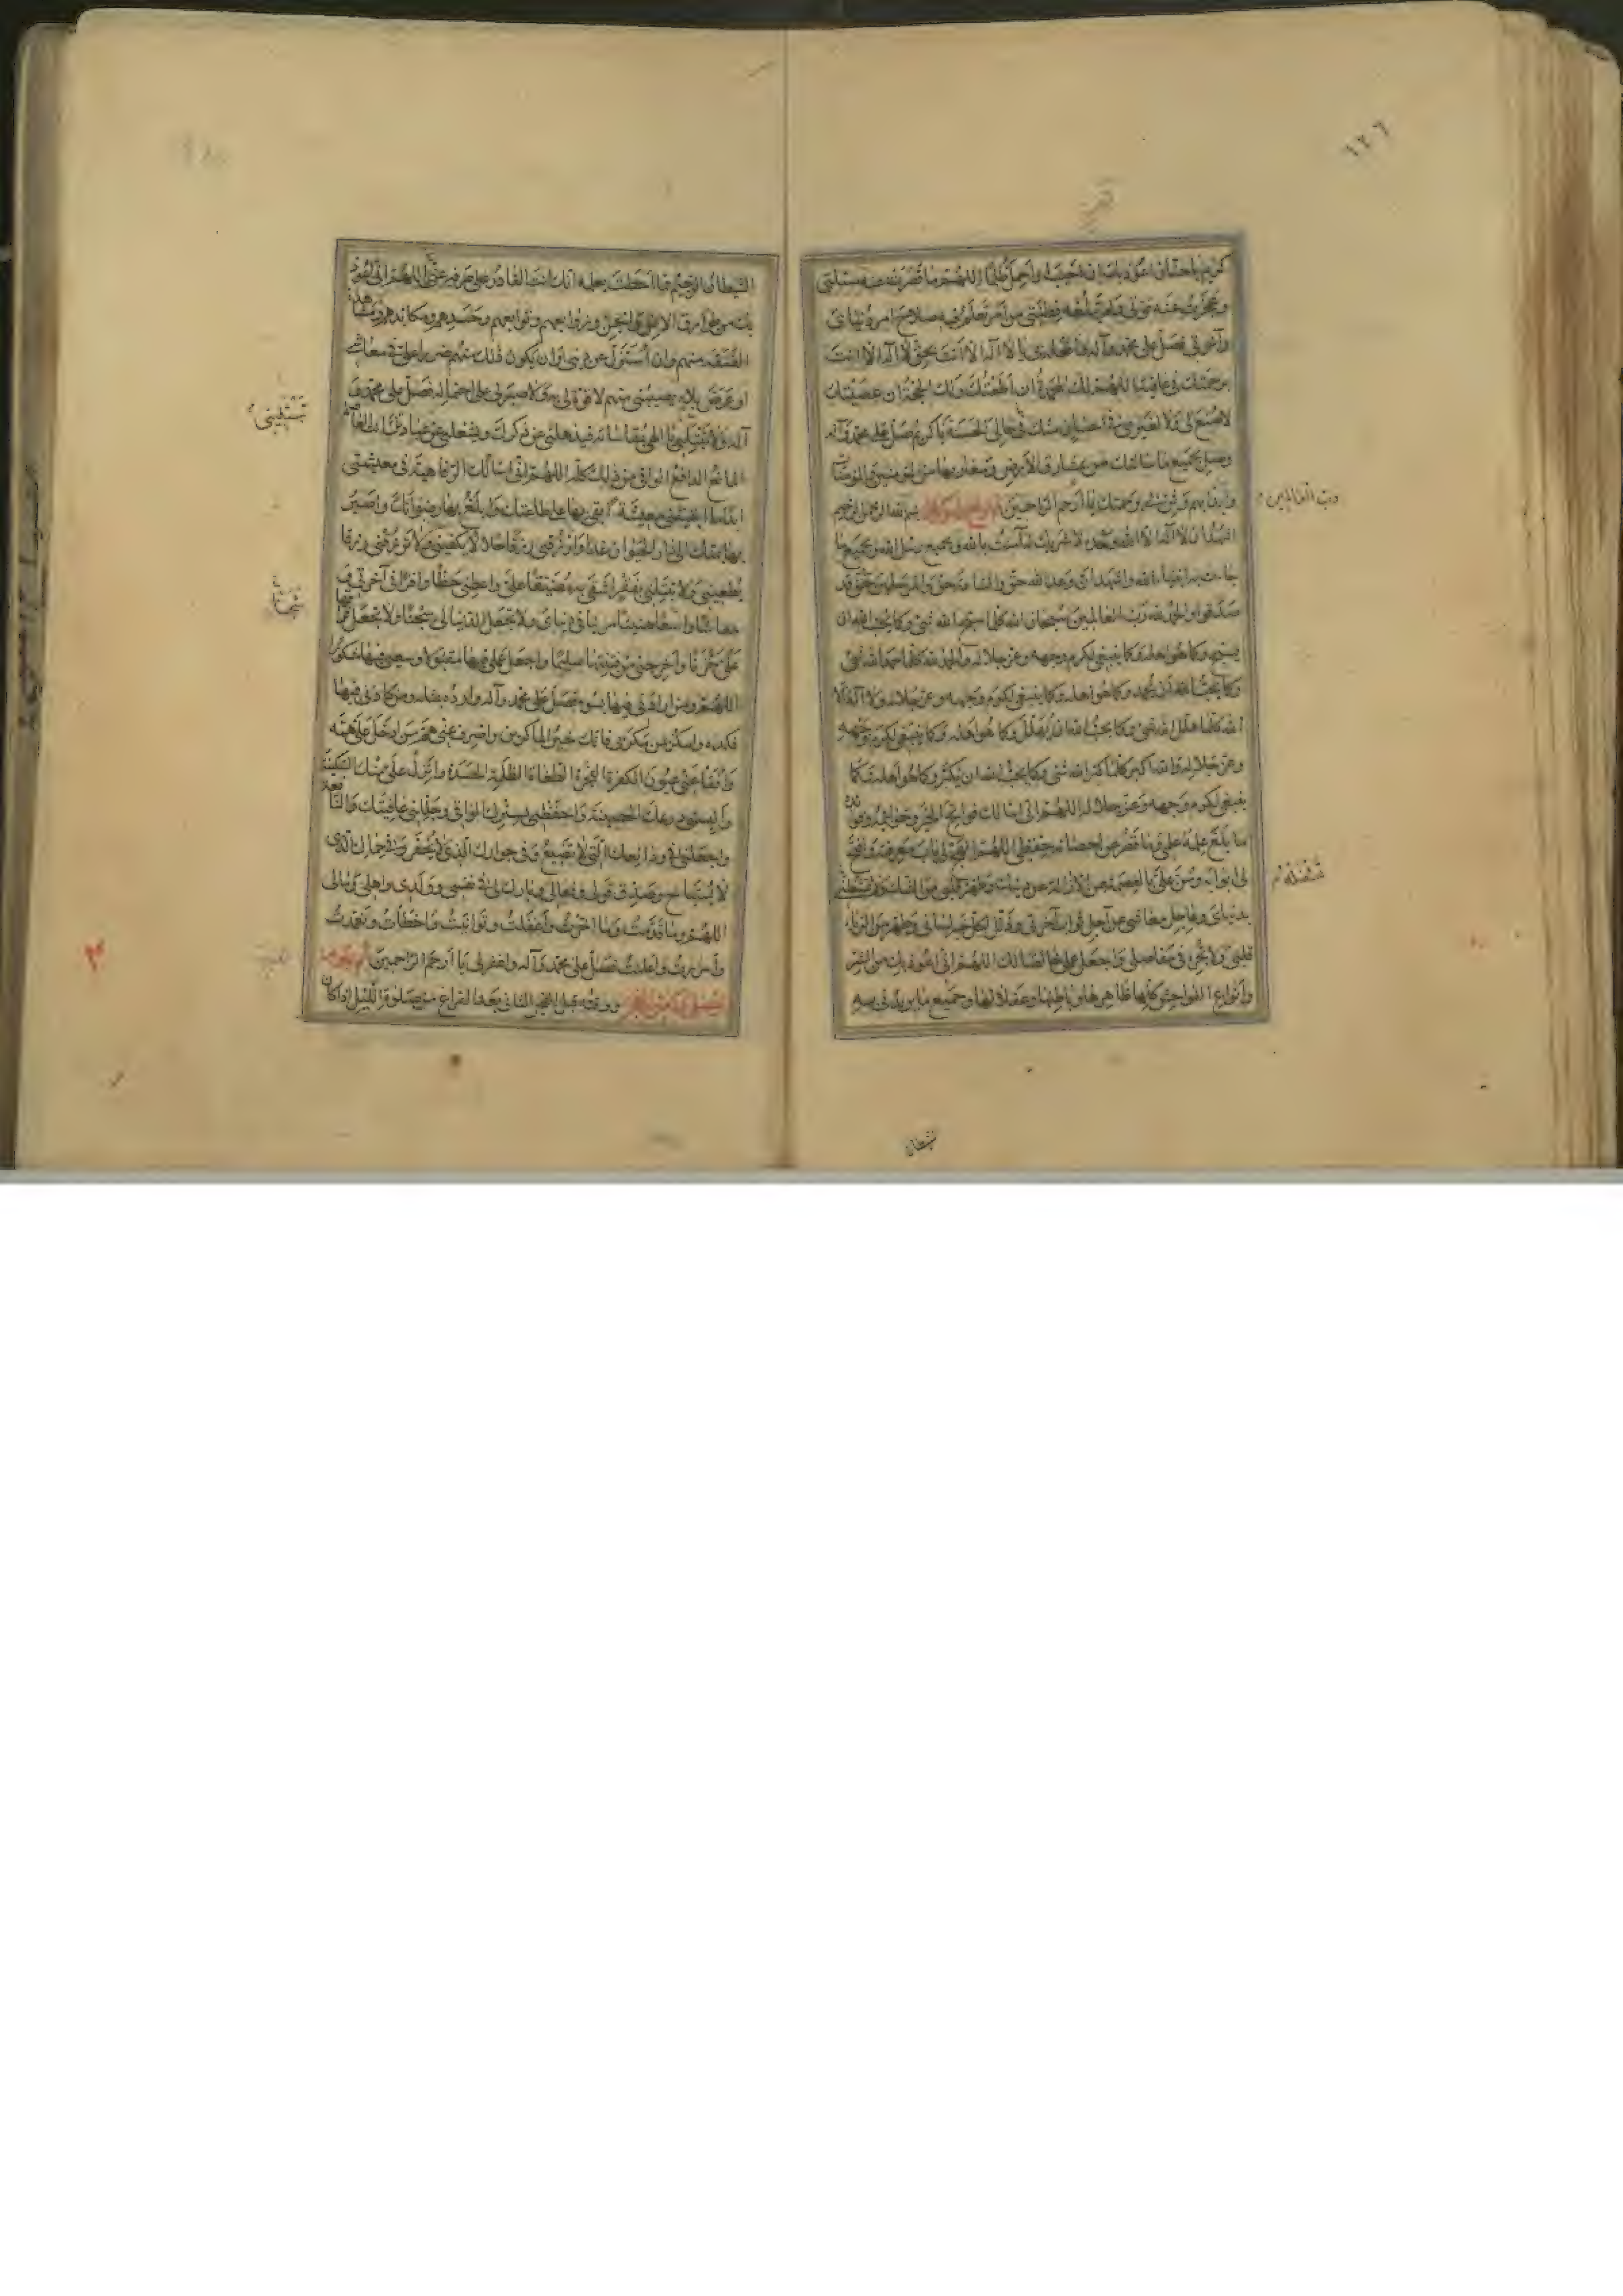 ١٢٦
كريم يا حنان اعوذ بك ان اخيب او احمل ظلما اللهم ما قصرت عنه مسئلتى
وعجزت عنه قوتى ولم تبلغه فطنتى من امر تعلم فيه صلاح امر دنياى
وآخرتى فصل على محمد وآله يا لا اله الا انت بحق لا اله الا انت
برحمتك فى عافية اللهم لك المحمدة ان اطعتك ولك الحجة ان عصيتك
لا صنع لى ولا لغيرى فى احسان منك فى حالى الحسنة يا كريم صل على محمد وآله
وصل بجميع ما سالتك من مشارق الارض ومغاربها من المؤمنين والمؤمنات
وابدا بهم وثن بى برحمتك يا ارحم الراحمين بسم الله الرحمن الرحيم
اشهد ان لا اله الا الله وحده لا شريك له آمنت بالله وبجميع رسل الله وبجميع ما
جاءت به انبياء الله واشهد ان وعد الله حق والساعة حق والمرسلين حق قد
صدقوا والحمد لله رب العالمين سبحان الله كلما سبح الله شئ وكما يحب الله ان
يسبح وكما هو اهله وكما ينبغى لكرم وجهه وعز جلاله والحمد لله كلما حمد الله شئ
وكما يحب الله ان يحمد وكما هو اهله وكما ينبغى لكرم وجهه وعز جلاله ولا اله الا
الله كلما هلل الله شئ وكما يحب الله ان يهلل وكما هو اهله وكما ينبغى لكرم وجهه
وعز جلاله والله اكبر كلما كبر الله شئ وكما يحب الله ان يكبر وكما هو اهله وكما
ينبغى لكرم وجهه وعز جلاله اللهم انى اسالك فواتح الخير وخواتيمه وفوائده
ما بلغ علمه علمى وما قصر عن احصائه حفظى اللهم انهج لى باب معرفته وافتح
لى ابوابه ومن على بالعصمة عن الازالة عن دينك وطهر قلبى من الشك ولا تشغله
بدنياى وعاجل معاشى عن آجل ثواب آخرتى وذلل لكل خير لسانى وطهر من الرياء
قلبى ولا تجره فى مفاصلى واجعل عملى خالصا لك اللهم انى اعوذ بك من الشر
وانواع الفواحش كلها ظاهرها وباطنها وغفلاتها وجميع ما يريدنى به
رب العالمين
تشغله
الشيطان
الشيطان الرجيم مما احطت بعلمه انك انت القادر على صرفه عنى اللهم انى اعوذ
بك من طوارق الانس والجن وزوابعهم وتوابعهم وحسدهم ومكائدهم ومشاهد
الفسقة منهم وان استزل عن دينى او ان يكون ذلك منهم ضررا على فى معاشى
او عرض بلاء يصيبنى منهم لا قوة لى به ولا صبر لى على احتماله فصل على محمد و
آله ولا تبتلينى يا الهى بمقاساته فيذهلنى عن ذكرك ويشغلنى عن عبادتك انت العاصم
المانع الدافع الواقى من ذلك كله اللهم انى اسالك الرفاهية فى معيشتى
ابدا ما ابقيتنى معيشة اقوى بها على طاعتك وابلغ بها رضوانك واصير
بها بمنك الى دار الحيوان غدا وارزقنى رزقا حلالا يكفينى ولا ترزقنى رزقا
يطغينى ولا تبتلينى بفقر اشقى به مضيقا على واعطنى حظا وافرا فى آخرتى و
معاشا واسعا هنيئا مريا فى دنياى ولا تجعل الدنيا لى سجنا ولا تجعل فراقها
على حزنا واخرجنى من فتنتها سليما واجعل عملى فيها مقبولا وسعيى فيها مشكورا
اللهم ومن ارادنى فيها بسوء فصل على محمد وآله وارده بمثله ومن كادنى فيها
فكده وامكر بمن مكر بى فانك خير الماكرين واصرف عنى هم من ادخل على همه
وافقا عنى عيون الكفرة الفجرة الطغاة الظلمة الحسدة وانزل على منك السكينة
والبسنى درعك الحصينة واحفظنى بسترك الواقى وجللنى عافيتك النافعة
واجعلنى فى ودائعك التى لا تضيع وفى جوارك الذى لا يخفر وفى حماك الذى
لا يستباح وصدق قولى وفعالى وبارك لى فى نفسى وولدى واهلى ومالى
اللهم وما قدمت وما اخرت واغفلت وتوانيت وما اخطات وتعمدت
واسررت واعلنت فصل على محمد وآله واغفر لى يا ارحم الراحمين ثم يقوم
فيصلى ركعتى الفجر ووقته قبل الفجر الثانى بعد الفراغ من صلوة الليل اذا كان
تبتلينى
سجنا
٣